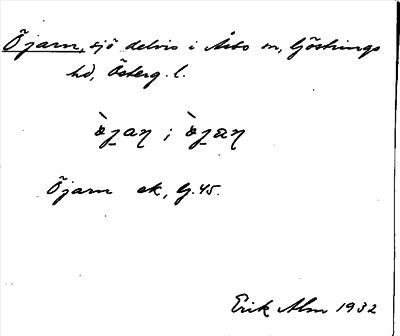 Öjarn, sjö delvis i Åsbo sn, Göstrings
hd, Österg. l.
Öjarn ek, G. 45.
Erik Alm 1932